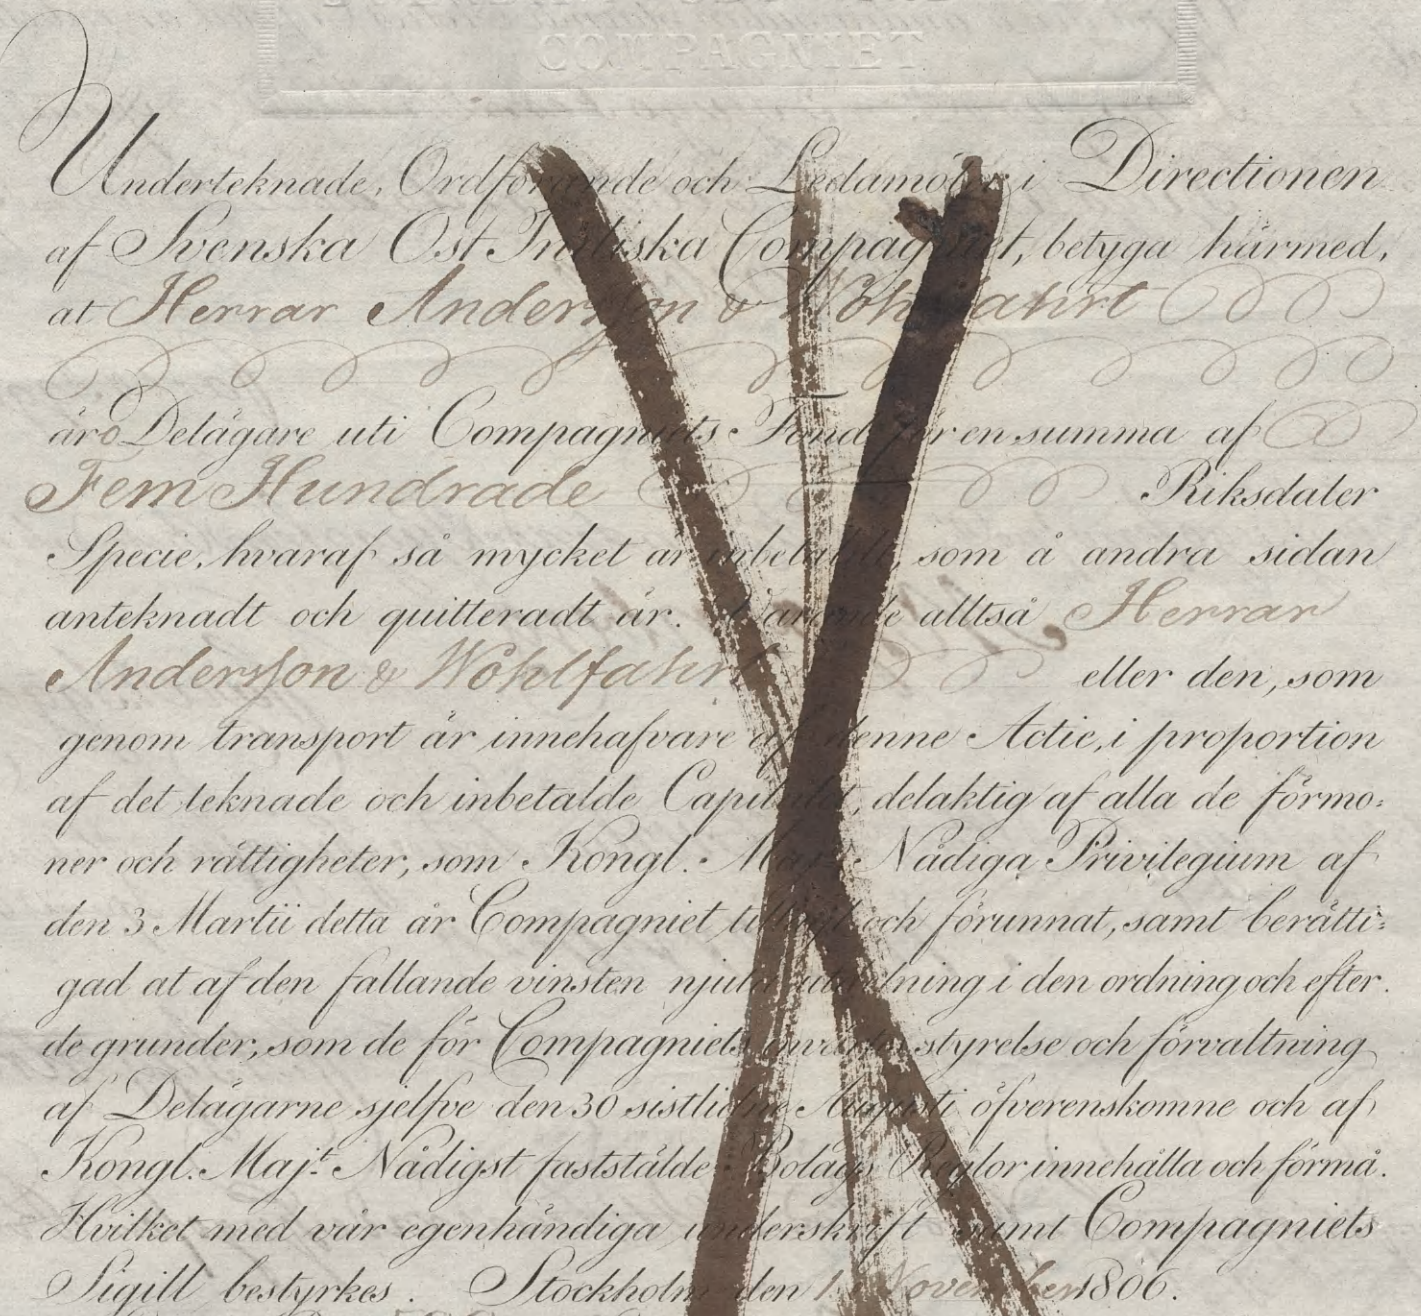 COMPAGNIET
Underteknade, Ordförande och Ledamöter i Directionen
af Svenska Ost Indiska Compagniet, betyga härmed,
at Herrar Andersson & Wohlfahrt
äro Delägare uti Compagniets Fond för en summa af
Fem Hundrade Riksdaler
Specie, hvaraf så mycket är inbetaldt, som å andra sidan
anteknadt och quitteradt är. Varande alltså Herrar
Andersson & Wohlfahrt eller den, som
genom transport är innehafvare af denne Actie, i proportion
af det teknade och inbetalde Capitalet, delaktig af alla de förmo:
ner och rättigheter, som Kongl. Majts Nådiga Privilegium af
den 3 Martii detta år Compagniet och förunnat, samt berätti:
gad at af den fallande vinsten njuta utdelning i den ordning och efter
de grunder, som de för Compagniets styrelse och förvaltning
af Delägarne sjelfve den 30 sistlidne Augusti öfverenskomne och af
Kongl. Maj:t Nådigst fastställde Bolags Reglor innehålla och förmå.
Hvilket med vår egenhändiga underskrift samt Compagniets
Sigill bestyrkes. Stockholm den 1 November 1806.